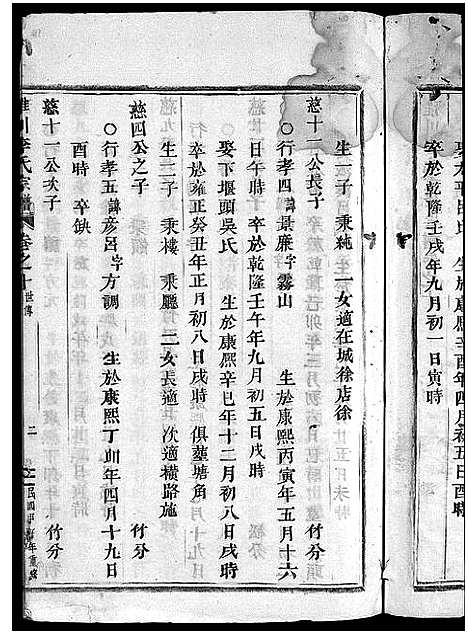 娶太平田氏 生於康熙辛酉年四月初五日酉時
卒於乾隆壬戌年九月初一日寅時
生一子 秉純 一女適在城徐店徐
慈十一公長子 竹分
○行孝四諱景廉字霧山 生於康熙丙寅年五月十六
日午時 卒於乾隆壬午年九月初五日戌時
娶下堰頭吳氏 生於康熙辛巳年十二月初八日戌時
卒於雍正癸丑年正月初八日戌時 俱墓塘角
生二子 秉樓 秉廳 二女長適 次適橫路施
慈四公之子 竹分
○行孝五諱彦呂字方調 生於康熙丁卯年四月十九日
酉時 卒缺
慈十一公次子 竹分
氏宗譜 卷之十 世傳 二 民國 年重修